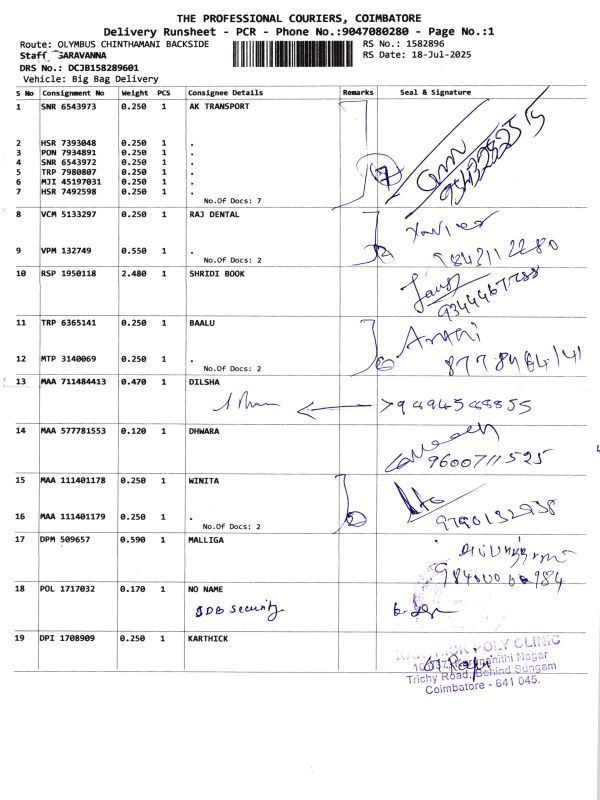 THE PROFESSIONAL COURIERS, COIMBATORE
Delivery Runsheet - PCR - Phone No.:9047080280 - Page No.:1
Route: OLYMBUS CHINTHAMANI BACKSIDE RS No.: 1582896
Staff SARAVANNA RS Date: 18-Jul-2025
DRS No.: DCJB158289601
Vehicle: Big Bag Delivery
S No Consignment No Weight PCS Consignee Details Remarks Seal & Signature
1 SNR 6543973 0.250 1 AK TRANSPORT
2 HSR 7393048 0.250 1 .
3 PON 7934891 0.250 1 .
4 SNR 6543972 0.250 1 .
5 TRP 7980807 0.250 1 .
6 MJI 45197031 0.250 1 .
7 HSR 7492598 0.250 1 .
No.Of Docs: 7
7
8 VCM 5133297 0.250 1 RAJ DENTAL
Xavier
9 VPM 132749 0.550 1 .
No.Of Docs: 2
2
10 RSP 1950118 2.480 1 SHRIDI BOOK
11 TRP 6365141 0.250 1 BAALU
12 MTP 3140069 0.250 1 .
No.Of Docs: 2
13 MAA 711484413 0.470 1 DILSHA
14 MAA 577781553 0.120 1 DHWARA
9600711525
15 MAA 111401178 0.250 1 WINITA
16 MAA 111401179 0.250 1 .
9790132938
No.Of Docs: 2
2
17 DPM 509657 0.590 1 MALLIGA
18 POL 1717032 0.170 1 NO NAME
SDB Security
19 DPI 1708909 0.250 1 KARTHICK
POLY CLINIC
Nagar
Trichy Road, Behind Sungam
Coimbatore - 641 045.